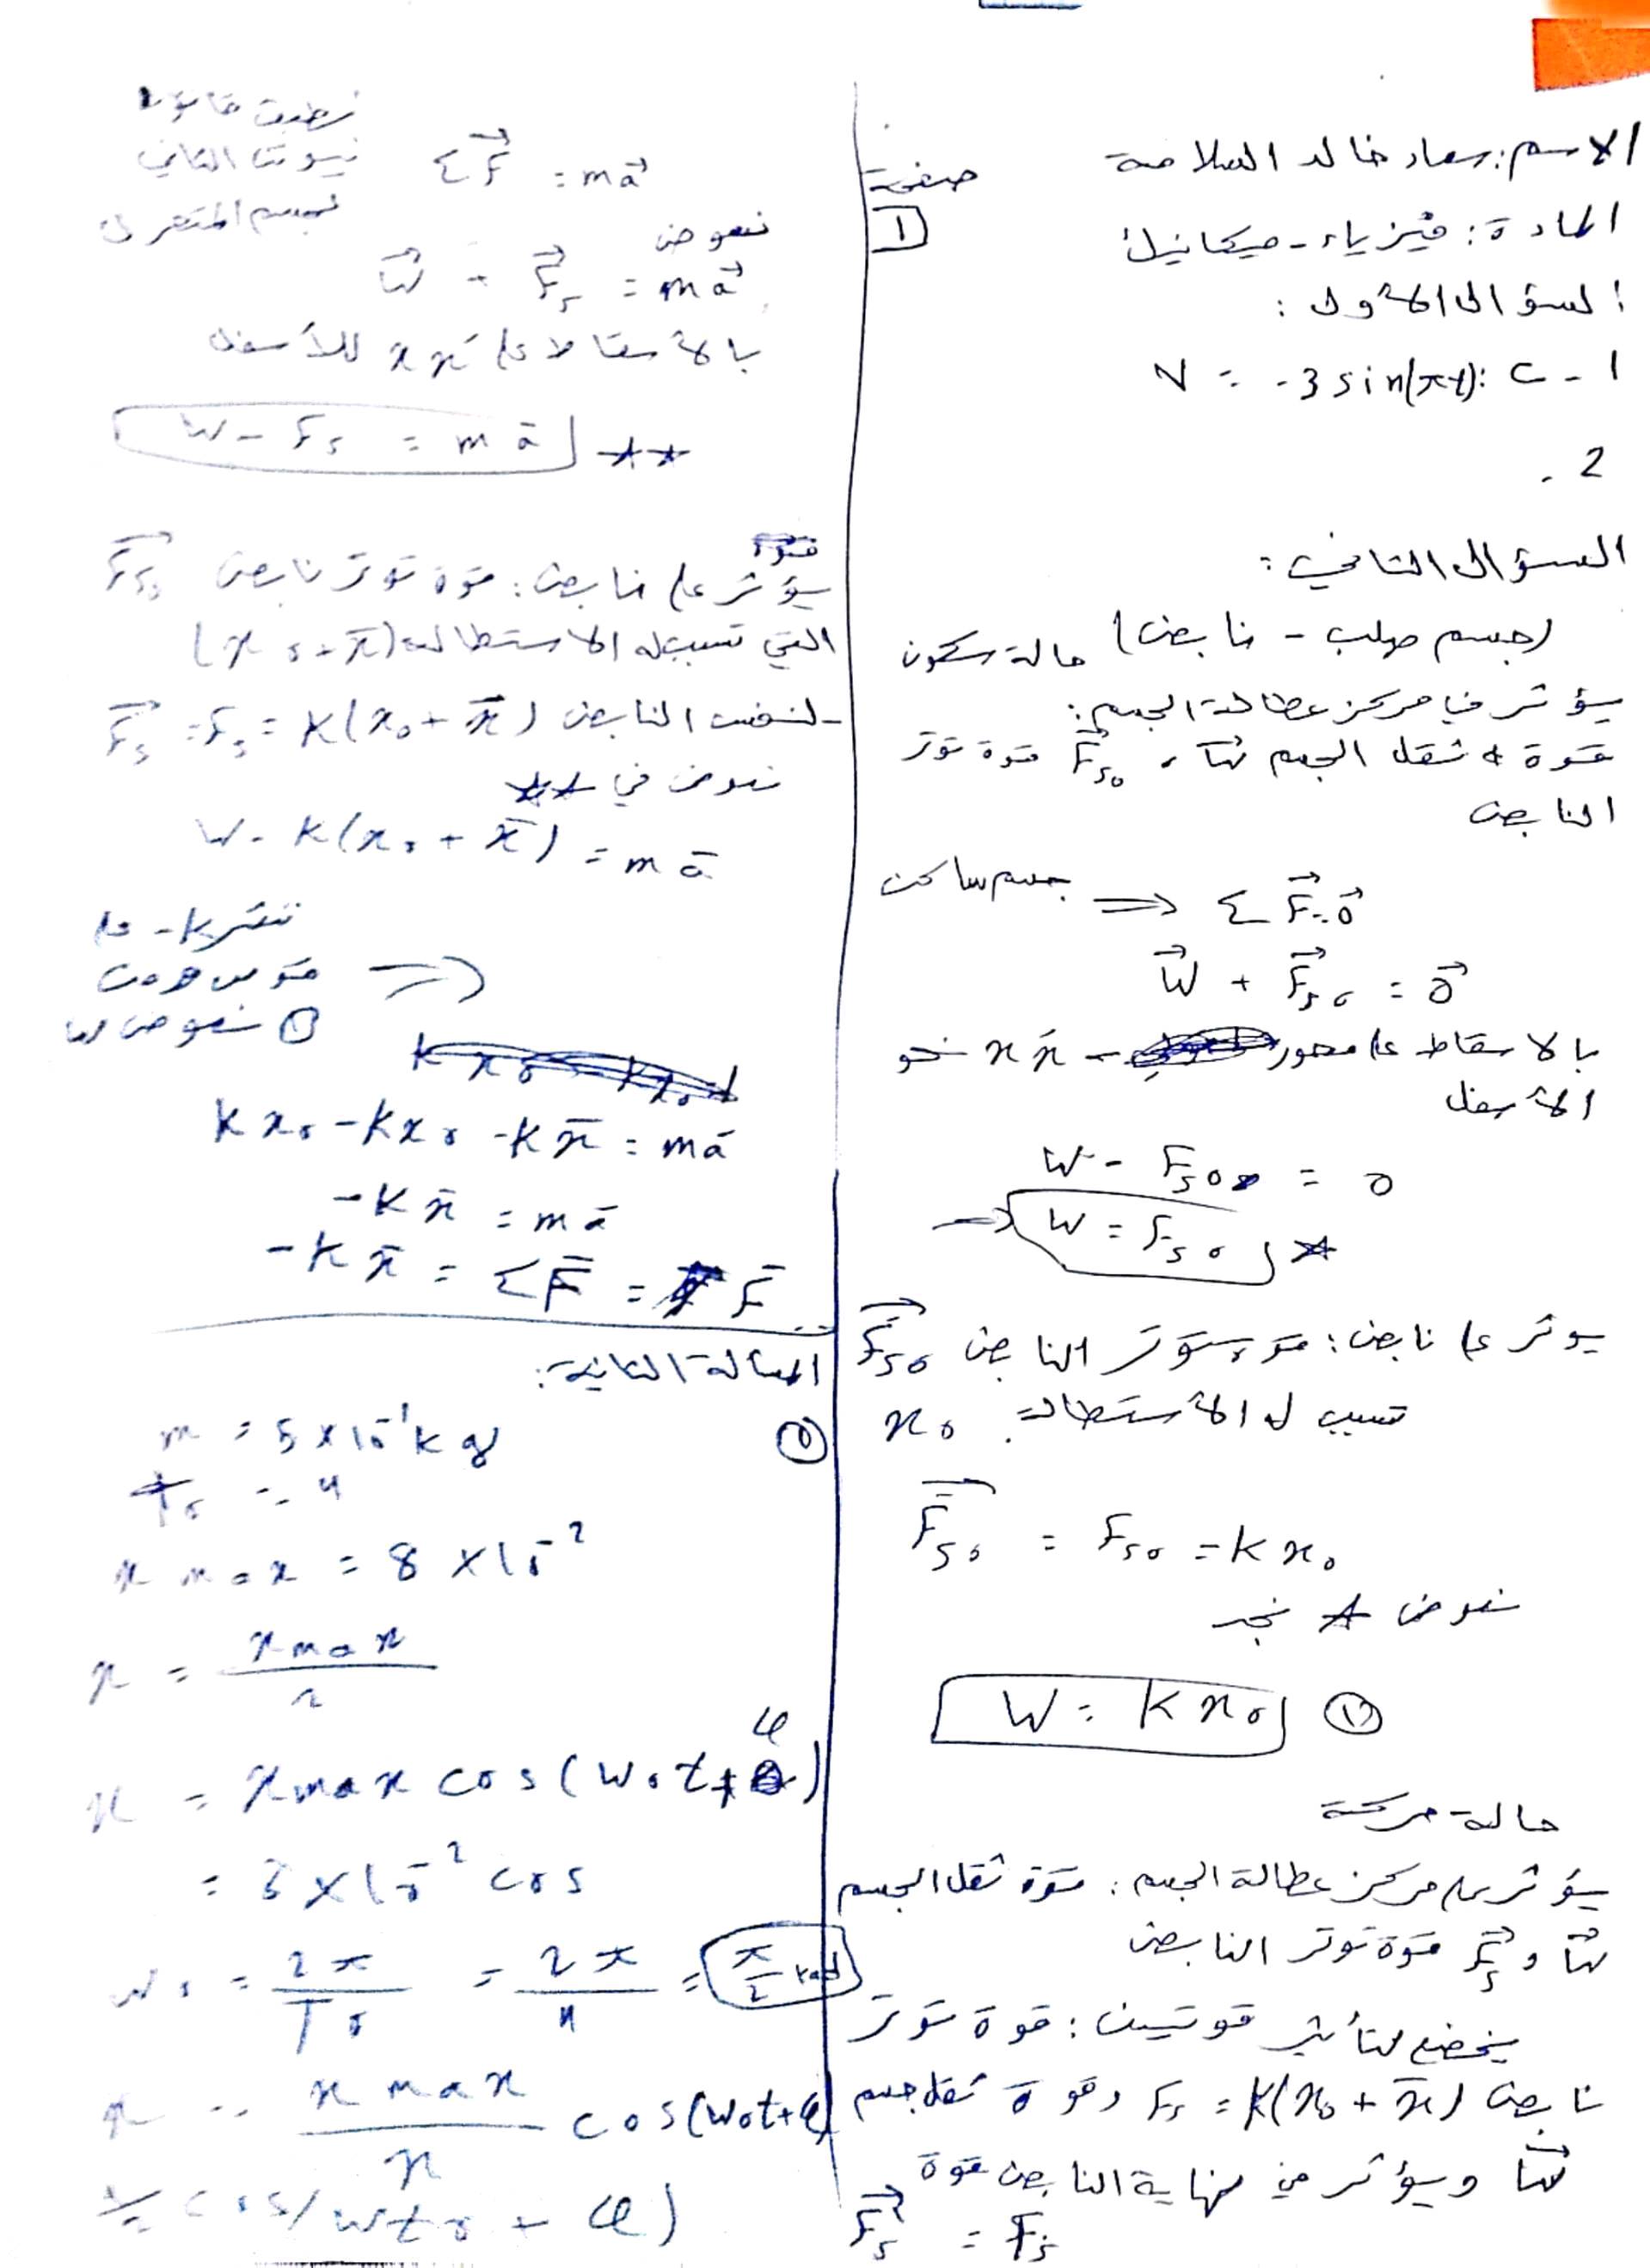 الاسم: سعاد خالد السلامة
المادة: فيزياء - ميكانيك
صفحة
1
السؤال الأول:
1 - C : v = -3 sin(πt)
2 -
السؤال الثاني:
(جسم صلب - نابض) حالة سكون
يؤثر في مركز عطالة الجسم:
قوة ثقل الجسم W⃗ ، F⃗s₀ قوة توتر
النابض
جسم ساكن ⟹ Σ F⃗ = 0⃗
W⃗ + F⃗s₀ = 0⃗
بالاسقاط على محور x x́ نحو
الأسفل
W - Fs₀ = 0
⟹ W = Fs₀ *
يوثر على نابض: قوة توتر النابض F⃗s₀
تسبب له الأستطالة x₀
F⃗́s₀ = Fs₀ = k x₀
نعوض * نجد
W = k x₀ ①
حالة حركة
يؤثر على مركز عطالة الجسم: قوة ثقل الجسم
W⃗ و F⃗s قوة توتر النابض
يخضع لتأثير قوتين: قوة توتر
نابض Fs = k(x₀ + x̄) وقوة ثقل جسم
W⃗ ويؤثر في نهاية النابض قوة
F⃗́s = Fs
نطبق قانون
نيوتن الثاني
لجسم المتحرك
Σ F⃗ = ma⃗
نعوض
W⃗ - F⃗s = ma⃗
بالأسقاط على x x́ للأسفل
W - Fs = m ā **
قوة
يؤثر على نابض: قوة توتر نابض F⃗s₀
التي تسبب له الاستطالة (x₀ + x̄)
لنفس النابض F⃗s = Fs = k(x₀ + x̄)
نعوض في **
W - k(x₀ + x̄) = m ā
ننشر k- على
قوس ومن ⟹
① نعوض W
k x₀ - k x₀ - k x̄ = m ā
-k x̄ = m ā
-k x̄ = Σ F̄ = F̄
المسألة الثانية:
①
m = 5 × 10⁻¹ kg
T₀ = 4
x max = 8 × 10⁻²
x = x max / 2
x = x max cos(ω₀t + φ)
= 8 × 10⁻² cos
ω₀ = 2π / T₀ = 2π / 4 = π/2 rad
x = x max / x cos(ω₀t + φ)